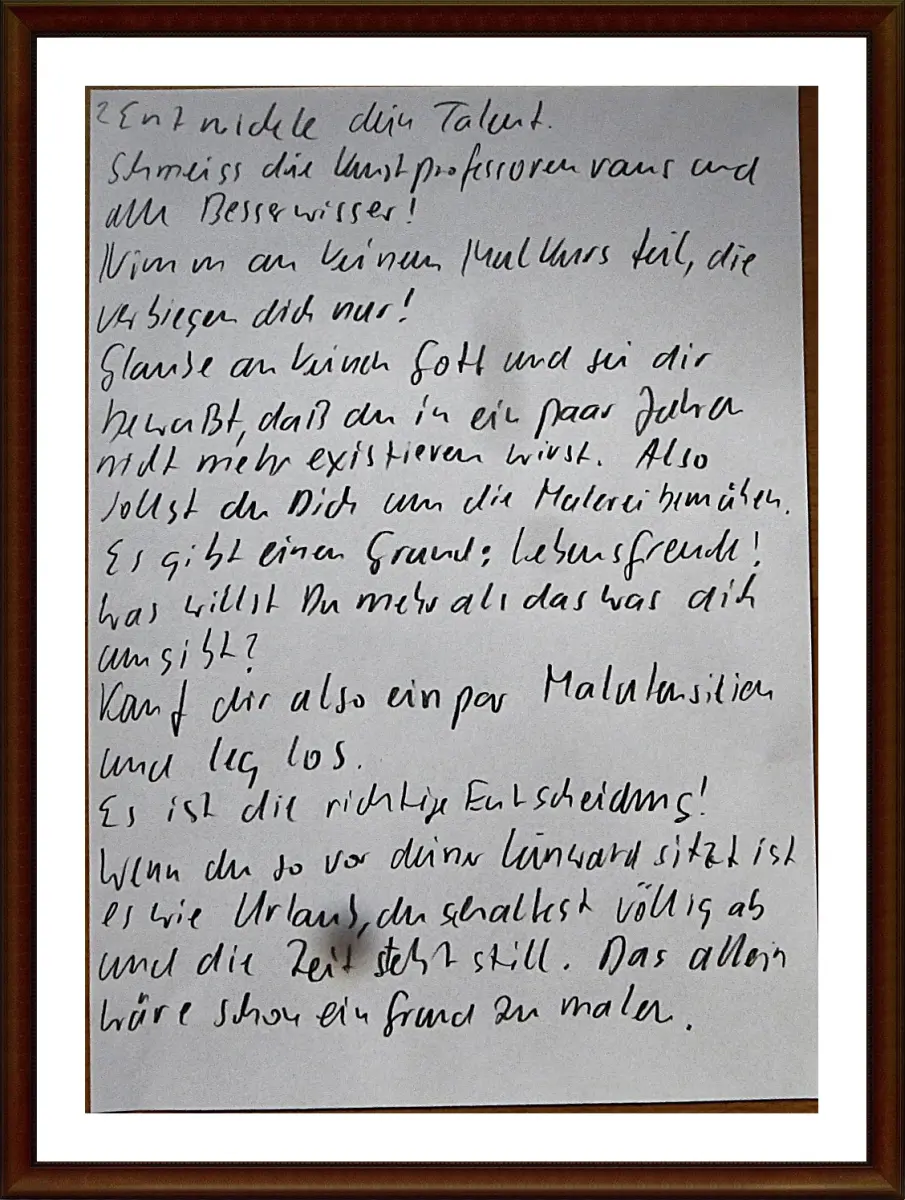 2 Entwickle dein Talent.
Schmeiss die Kunstprofessoren raus und
alle Besserwisser!
Nimm an keinem Malkurs teil, die
verbiegen dich nur!
Glaube an keinen Gott und sei dir
bewußt, daß du in ein paar Jahren
nicht mehr existieren wirst. Also
sollst du Dich um die Malerei bemühen.
Es gibt einen Grund: Lebensfreude!
Was willst Du mehr als das was dich
umgibt?
Kauf dir also ein par Malutensilien
und leg los.
Es ist die richtige Entscheidung!
Wenn du so vor deiner Leinwand sitzt ist
es wie Urlaub, du schaltest völlig ab
und die Zeit steht still. Das allein
wäre schon ein Grund zu malen.